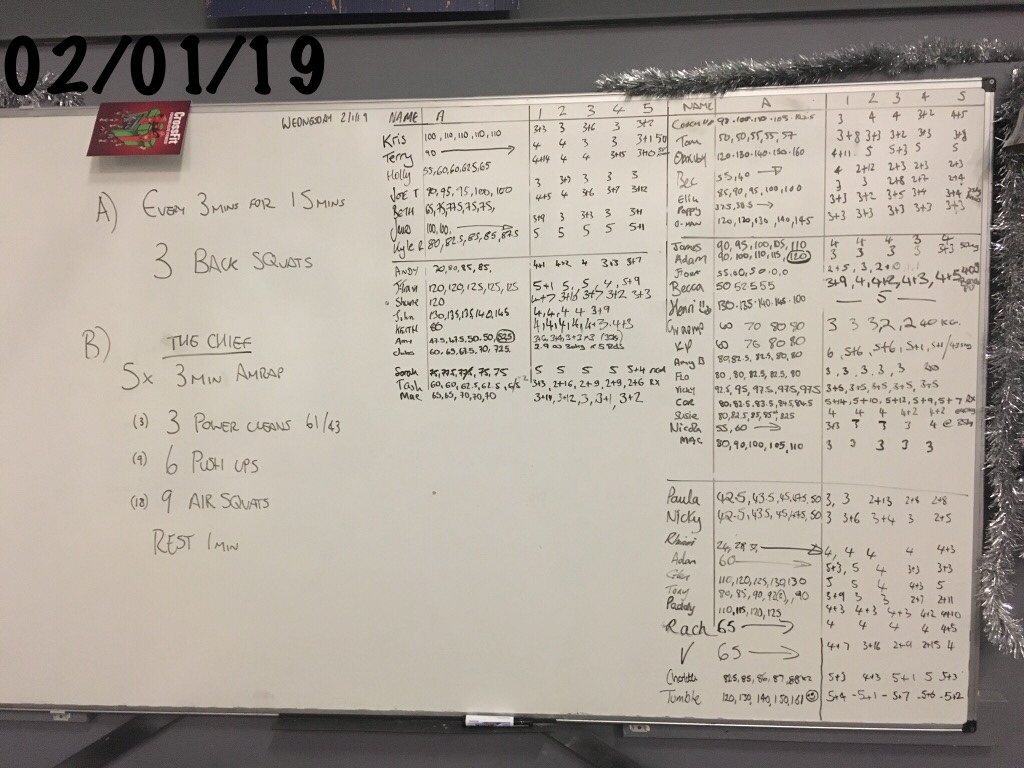 02/01/19
CrossFit
WEDNESDAY 2/1/19
A) EVERY 3 MINS FOR 15 MINS
3 BACK SQUATS
B) THE CHIEF
5x 3 MIN AMRAP
(3) 3 POWER CLEANS 61/43
(9) 6 PUSH UPS
(18) 9 AIR SQUATS
REST 1 MIN
NAME A 1 2 3 4 5
Kris 100, 110, 110, 110, 110 3+3 3 3+6 3 3+2
Terry 90 → 4 4 3 3
Holly 55, 60, 60, 62.5, 65 4+14 4 4 3+5
JOE T 90, 95, 95, 100, 100 3 3+3 3 3 3
BETH 65, 75, 77.5, 75, 75, 4+5 4 3+6 3+7 3+12
100, → 3+9 3 3+3 3 3+1
Kyle R 80, 82.5, 85, 85, 87.5 5 5 5 5 5+1
ANDY 70, 80, 85, 85, 4+1 4+2 4 3+3 3+7
120, 120, 125, 125, 125 5+1 5, 5, 4, 5+9
120 4+7 3+16 3+7 3+2 3+3
John 130, 135, 135, 140, 145 4, 4, 4 4 3+9
KEITH 80 4, 4, 4, 4, 4+3
47.5, 47.5, 50, 50, 52.5
60, 65, 67.5, 70, 72.5
Sarah 75, 75, 77.5, 75, 75 5 5 5 5 5+4
Tash 60, 60, 62.5, 62.5, 3+3, 2+16, 2+9, 2+9, 2+6 Rx
Mac 65, 65, 70, 70, 70 3+14, 3+12, 3, 3+1, 3+2
NAME A 1 2 3 4 5
90 · 100 · 110 · 105 · 3 4 4 3+2 4+5
Tom 50, 50, 55, 55, 57 3+8 3+3 3+2 3+3 3+8
120 · 130 · 140 · 150 · 160 4+11 5 5+3 5 5
Bec 55, 40 → 4 2+12 2+3 2+3 2+3
Ellie 85, 90, 95, 100, 100 3 3 2+8 2+7 2+4
Poppy 37.5, 38.5 → 3+3 3+2 3+5 3+4 3+4
120, 120, 130, 140, 145 3+3 3+3 3+3 3+3 3+3
James 90, 95, 100, 105, 110 4 4 4 3 4
Adam 90, 100, 110, 115, 120 3 3 3 3 3+3
2+5, 3, 2+
Becca 50 52.5 55 3+9, 4, 4+2, 4+3, 4+5
Henri 130 · 135 · 140 · 145 · 100 — 5 —
60 70 80 80 3 3 3 2, 2 40 KG.
KP 60 70 80 80
Amy B 80, 82.5, 82.5, 80, 80 6, 5+6, 5+6, 5+1, 5+1
Flo 80, 80, 82.5, 82.5, 80 3, 3, 3, 3, 3
Vicky 92.5, 95, 97.5, 97.5, 97.5 3+6, 3+5, 3+5, 3+5, 3+5
80, 82.5, 83.5, 84.5, 84.5 5+14, 5+10, 5+12, 5+9, 5+7 Rx
Susie 80, 82.5, 85, 85, 82.5 4 4 4 4+2 4+2
Nicola 55, 60 → 3+3 3 3 3 4 @
MAC 80, 90, 100, 105, 110 3 3 3 3 3
Paula 42.5, 43.5, 45, 47.5, 50 3, 3 2+13 2+8 2+8
Nicky 42.5, 43.5, 45, 47.5, 50 3 3+6 3+4 3 2+5
→ 4, 4 4 4 4+3
Adam 60 → 5+3, 5 4 3+3 3+3
110, 120, 125, 130, 130 5 5 4 4+3 5
Tony 80, 85, 90, 92(2), 90 3+9 3 3 2+7 2+11
Paddy 110, 115, 120, 125 4+3 4+3 4+3 4+2 4+10
Rach 65 → 4 4 4 4 4+5
V 65 → 4+7 3+16 2+9 2+15 4
82.5, 85, 86, 87, 88 5+3 4+3 5+1 5 5+3
Tumble 120, 130, 140, 150, 161 5+4 - 5+1 - 5+7 - 5+6 - 5+2